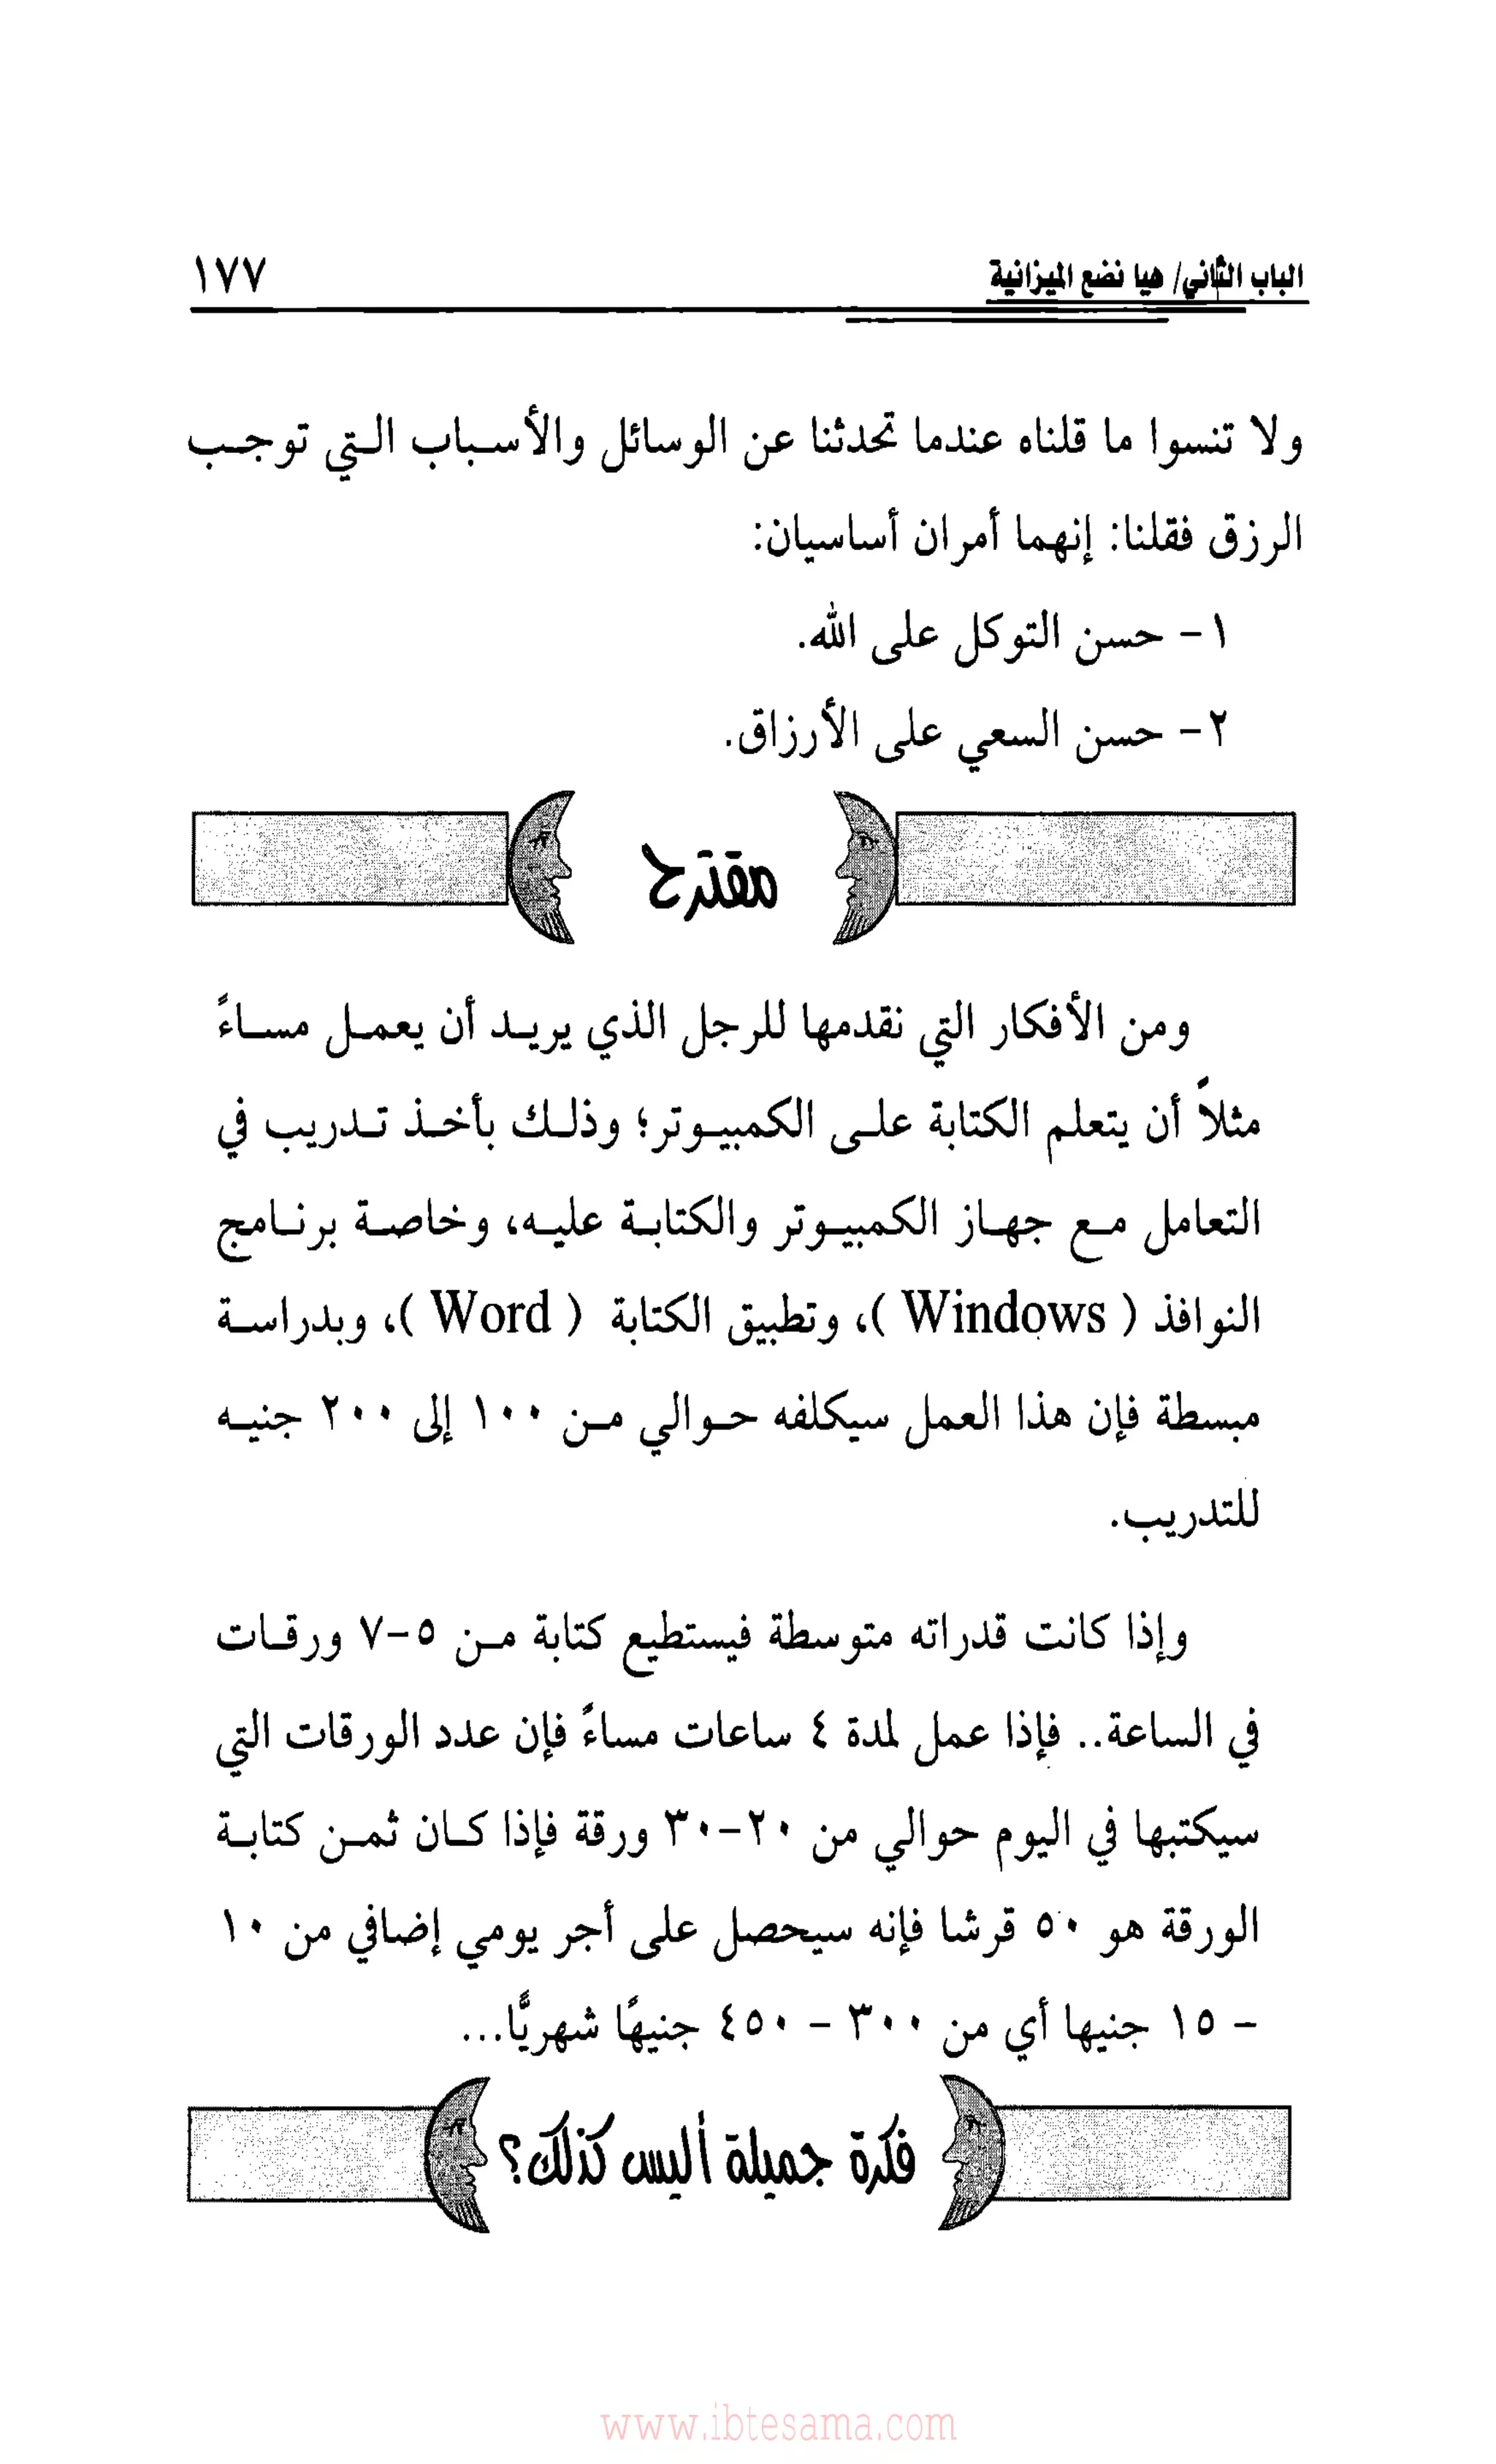 الباب الثاني/ هيا نضع الميزانية
١٧٧
ولا تنسوا ما قلناه عندما تحدثنا عن الوسائل والأسباب التي توجب
الرزق فقلنا: إنهما أمران أساسيان:
١- حسن التوكل على الله.
٢- حسن السعي على الأرزاق.
مقترح
ومن الأفكار التي نقدمها للرجل الذي يريد أن يعمل مساءً
مثلاً أن يتعلم الكتابة على الكمبيوتر؛ وذلك بأخذ تدريب في
التعامل مع جهاز الكمبيوتر والكتابة عليه، وخاصة برنامج
النوافذ ( Windows )، وتطبيق الكتابة ( Word )، وبدراسة
مبسطة فإن هذا العمل سيكلفه حوالي من ١٠٠ إلى ٢٠٠ جنيه
للتدريب.
وإذا كانت قدراته متوسطة فيستطيع كتابة من ٥-٧ ورقات
في الساعة.. فإذا عمل لمدة ٤ ساعات مساءً فإن عدد الورقات التي
سيكتبها في اليوم حوالي من ٢٠-٣٠ ورقة فإذا كان ثمن كتابة
الورقة هو ٥٠ قرشا فإنه سيحصل على أجر يومي إضافي من ١٠
- ١٥ جنيها أي من ٣٠٠ - ٤٥٠ جنيهًا شهريًّا...
فكرة جميلة أليس كذلك؟
www.ibtesama.com